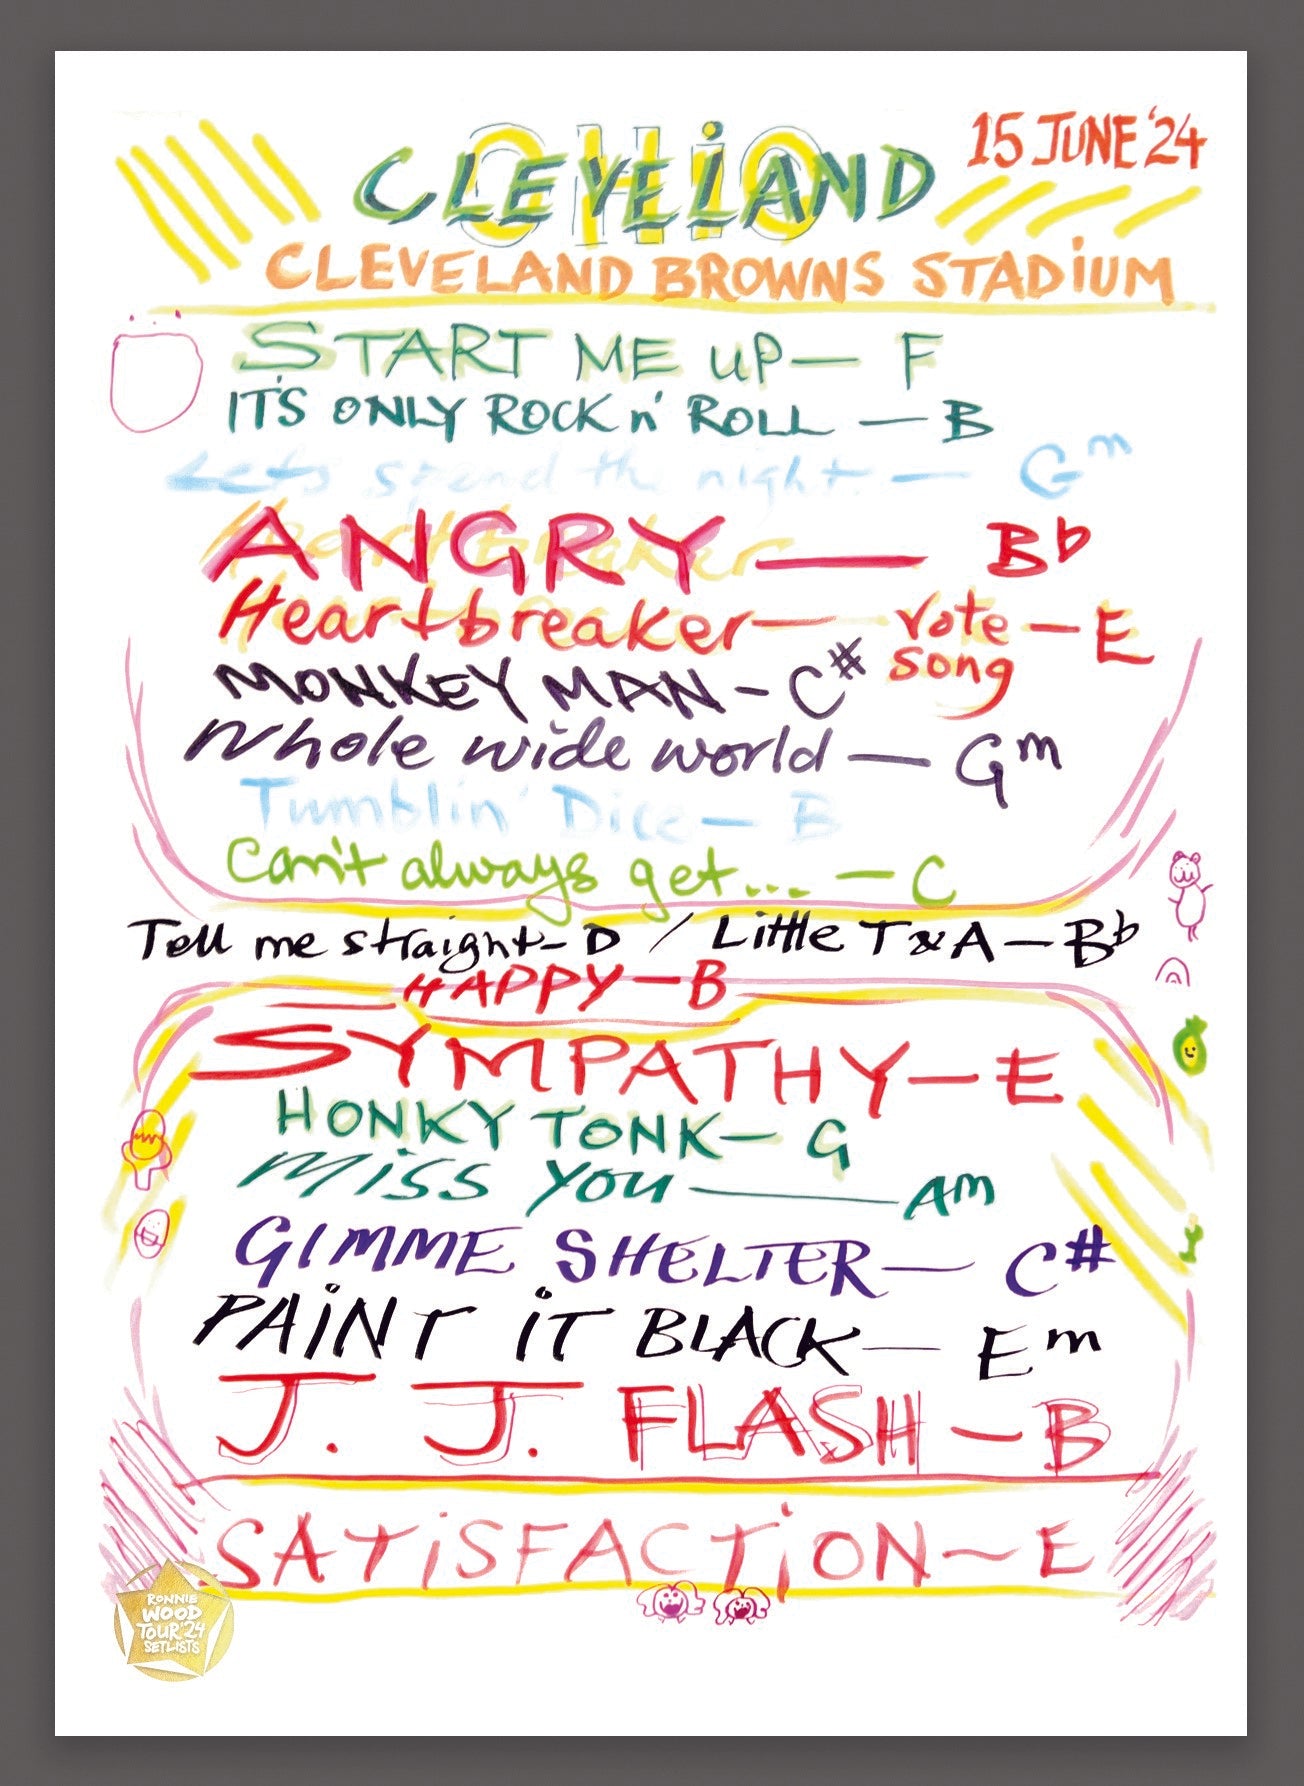 OHIO
CLEVELAND
15 JUNE '24
CLEVELAND BROWNS STADIUM
START ME UP — F
IT'S ONLY ROCK n' ROLL — B
Lets spend the night. — Gm
Heartbreaker
ANGRY — Bb
Heartbreaker — vote song — E
MONKEY MAN - C#
Whole wide world — Gm
Tumblin' Dice — B
Can't always get... — C
Tell me straight - D / Little T & A — Bb
HAPPY — B
SYMPATHY — E
HONKY TONK — G
MISS YOU — Am
GIMME SHELTER — C#
PAINT IT BLACK — Em
J. J. FLASH — B
SATISFACTION — E
RONNIE
WOOD
TOUR '24
SETLISTS